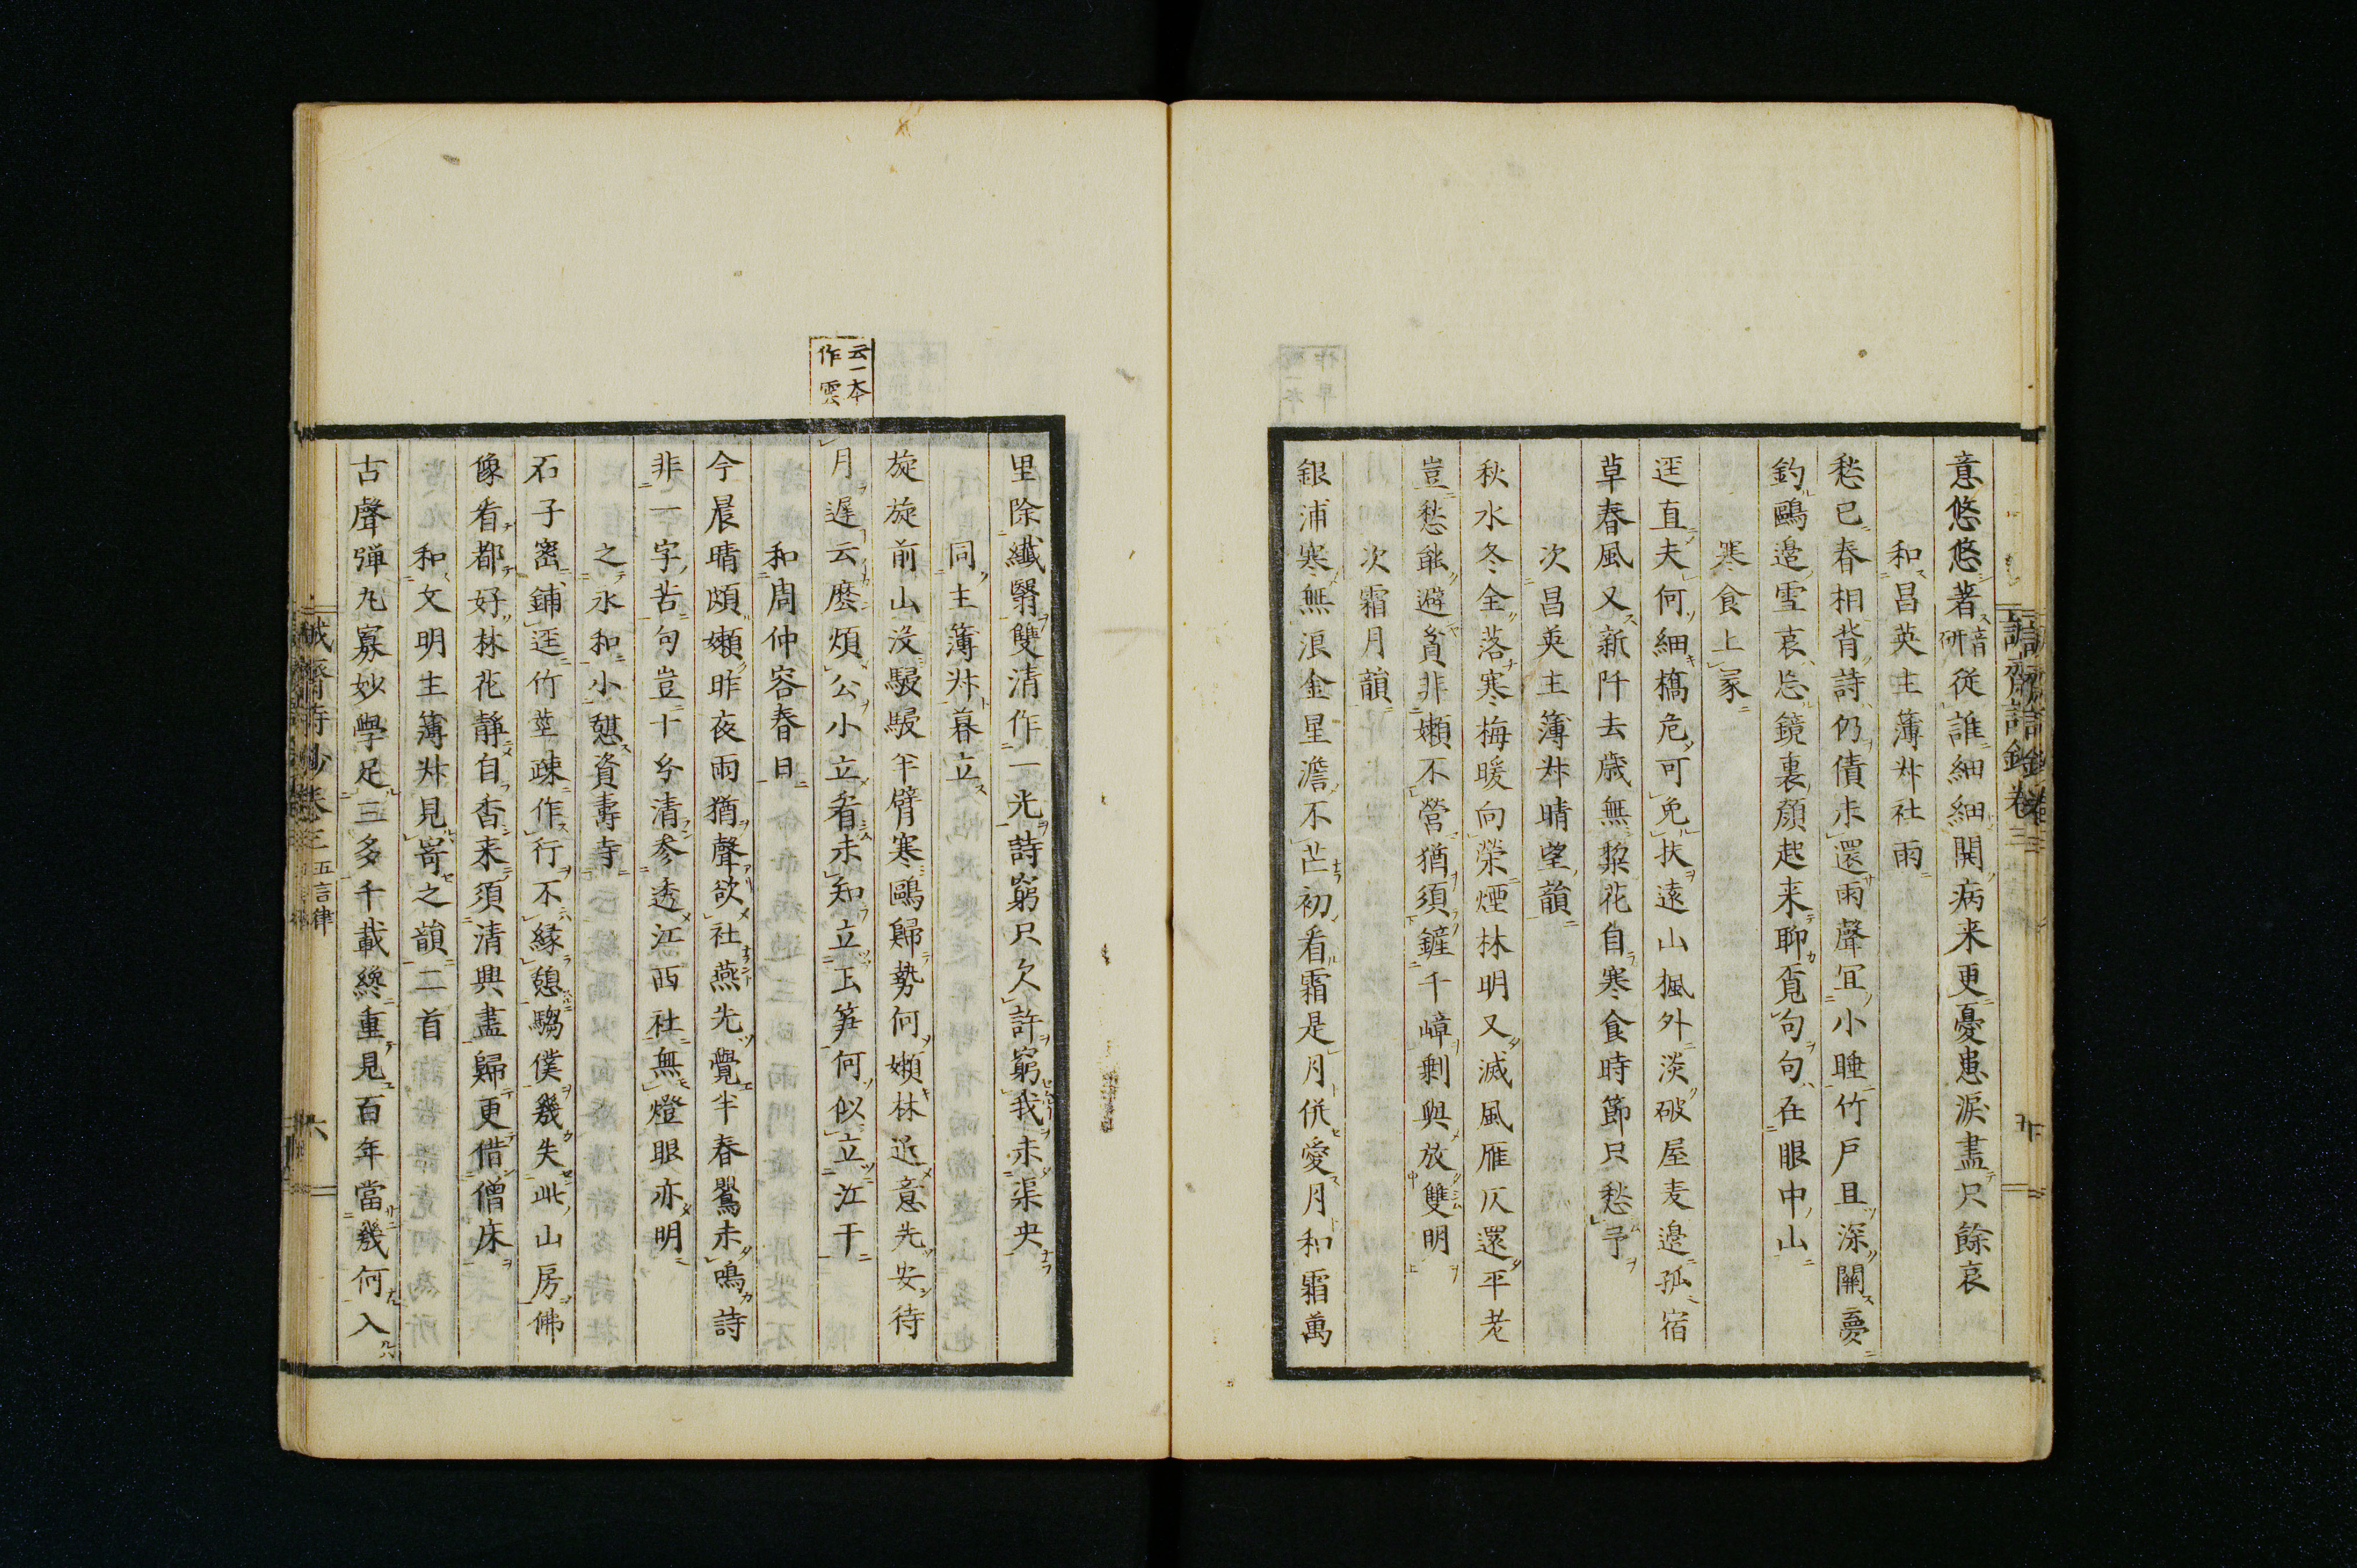 意悠悠著音研從誰細細開病来更憂患淚盡只餘哀
和昌英主薄叔社雨
愁已春相背詩仍債未還雨聲冝小睡竹戸且深關夣
釣鷗邉雪哀㤀鏡裏顔起来聊覔句句在眼中山
寒食上冢
逕直夫何細橋危可免扶遠山楓外淡破屋麦邉孤宿
草春風又新阡去歳無棃花自寒食時節只愁予
次昌英主簿叔晴望韻
秋水冬全落寒梅暖向榮煙林明又滅風雁仄還平老
豈愁能避貧非嬾不營猶須鏟千嶂剩與放雙明
次霜月韻
銀浦寒無浪金星澹不芒初看霜是月併愛月和霜萬
里除纖翳雙清作一光詩窮只欠許窮我未渠央
同主簿叔暮立
旋旋前山没駸駸半臂寒鷗歸勢何嬾林近意先安待
云一本
作雲
月遲云麽煩公小立看未知立玉笋何似立江干
和周仲容春日
今晨晴頗嬾昨夜雨猶聲欲社燕先覺半春鸎未鳴詩
非一字苦句豈十分清参透江西社無燈眼亦明
之永和小憇資壽寺
石子宻鋪逕竹莖疎作行不縁憩騶僕幾失此山房佛
像看都好林花静自香来須清興盡歸更借僧床
和文明主簿叔見寄之韻二首
古聲彈九寡妙學足三多千載終重見百年當幾何入
誠齋詩鈔卷三
五言律
六